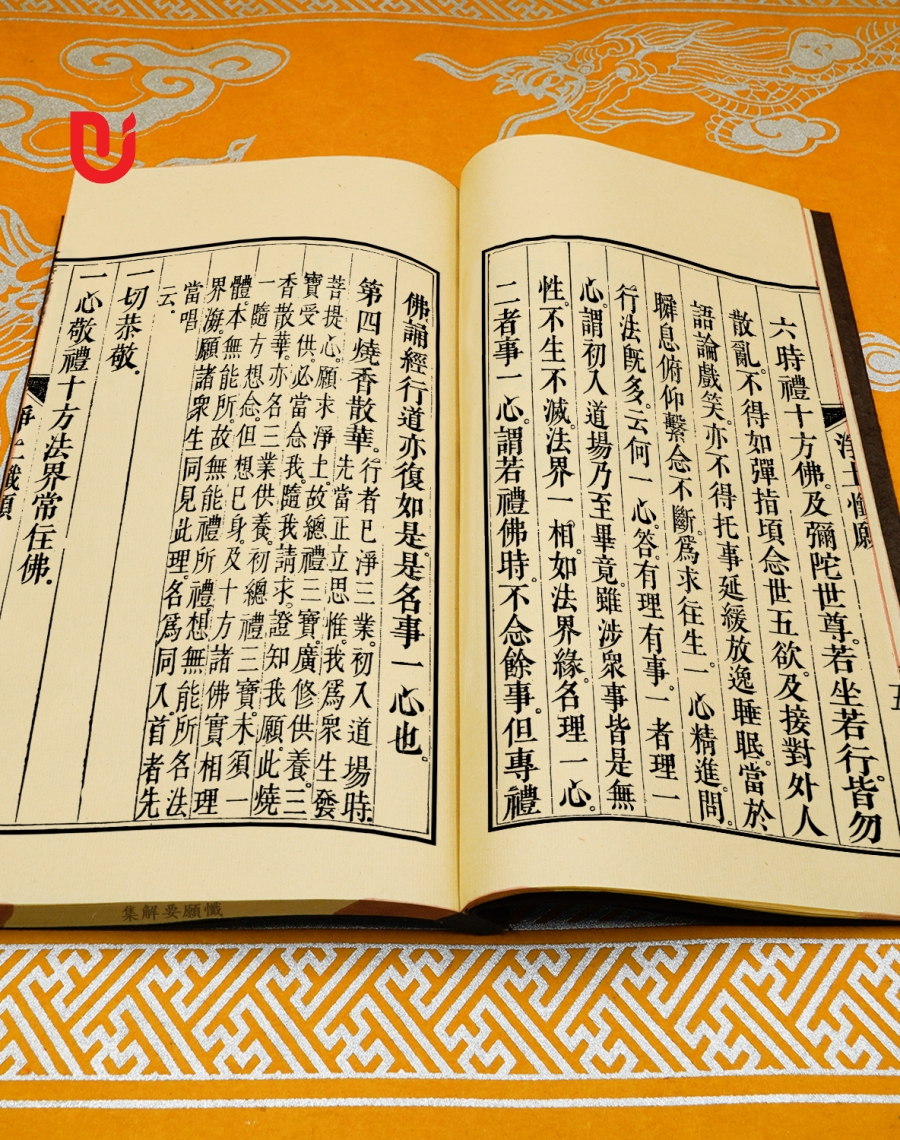 淨土懺願
六時禮十方佛。及彌陀世尊。若坐若行。皆勿
散亂。不得如彈指頃。念世五欲。及接對外人
語論戲笑。亦不得托事延緩放逸睡眠。當於
瞬息俯仰。繫念不斷。爲求往生。一心精進。問。
行法既多。云何一心。答。有理有事。一者理一
心。謂初入道場。乃至畢竟。雖涉衆事。皆是無
性。不生不滅。法界一相。如法界緣。名理一心。
二者事一心。謂若禮佛時。不念餘事。但專禮
佛。誦經行道。亦復如是。是名事一心也。
第四燒香散華。行者已淨三業。初入道場時。
先當正立思惟。我爲衆生發
菩提心。願求淨土。故總禮三寶。廣修供養。三
寶受供。必當念我。隨我請求。證知我願。此燒
香散華。亦名三業供養。初總禮三寶。未須一
一隨方想念。但想己身。及十方諸佛。實相理
體。本無能所。故無能禮所禮。想無能所。名法
界海。願諸衆生。同見此理。名爲同入。首者先
當唱
云。
一切恭敬。
一心敬禮十方法界常住佛。
淨土懺願
集解要願懺